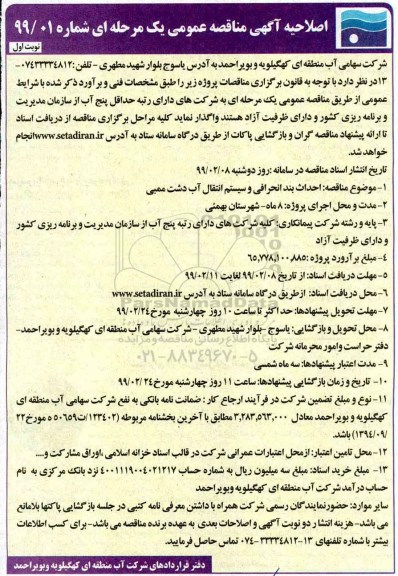 اصلاحیه آگهی مناقصه عمومی یک مرحله ای شماره ۹۹/۰۱
نوبت اول
شرکت سهامی آب منطقه ای کهگیلویه و بویراحمد به آدرس یاسوج بلوار شهید مطهری - تلفن: ۰۷۴۳۳۳۳۴۸۱۲-
۱۳ در نظر دارد با توجه به قانون برگزاری مناقصات پروژه زیر را طبق مشخصات فنی و برآورد ذکر شده با شرایط
عمومی از طریق مناقصه عمومی یک مرحله ای به شرکت های دارای رتبه حداقل پنج آب از سازمان مدیریت
و برنامه ریزی کشور و دارای ظرفیت آزاد هستند واگذار نماید کلیه مراحل برگزاری مناقصه از دریافت اسناد
تا ارائه پیشنهاد مناقصه گران و بازگشایی پاکات از طریق درگاه سامانه ستاد به آدرس www.setadiran.ir انجام
خواهد شد.
تاریخ انتشار اسناد مناقصه در سامانه: روز دوشنبه ۹۹/۰۲/۰۸
۱- موضوع مناقصه: احداث بند انحرافی و سیستم انتقال آب دشت ممبی
۲- مدت و محل اجرای پروژه: ۸ ماه- شهرستان بهمئی
۳- پایه و رشته شرکت پیمانکاری: کلیه شرکت های دارای رتبه پنج آب از سازمان مدیریت و برنامه ریزی کشور
و دارای ظرفیت آزاد
۴- مبلغ برآورد پروژه: ۶۵,۷۷۸,۱۰۰,۸۸۵
۵- مهلت دریافت اسناد: از تاریخ ۹۹/۰۲/۰۸ لغایت ۹۹/۰۲/۱۱
۶- محل دریافت اسناد: از طریق درگاه سامانه ستاد به آدرس www.setadiran.ir
۷- مهلت تحویل پیشنهادها: حداکثر تا ساعت ۱۰ روز چهارشنبه مورخ ۹۹/۰۲/۲۴
۸- محل تحویل و بازگشایی: یاسوج - بلوار شهید مطهری - شرکت سهامی آب منطقه ای کهگیلویه و بویراحمد-
دفتر حراست و امور محرمانه شرکت
۹- مدت اعتبار پیشنهادها: سه ماه شمسی
۱۰- تاریخ و زمان بازگشایی پیشنهادها: ساعت ۱۱ روز چهارشنبه مورخ ۹۹/۰۲/۲۴
۱۱- نوع و مبلغ تضمین شرکت در فرآیند ارجاع کار: ضمانت نامه بانکی به نفع شرکت سهامی آب منطقه ای
کهگیلویه و بویراحمد معادل ۳,۲۸۳,۵۶۳,۰۰۰ مطابق با آخرین بخشنامه مربوطه (۱۲۳۴۰۲/ت۵۰۶۵۹ ه مورخ ۲۲
/۱۳۹۴/۰۹) باشد.
۱۲- محل تامین اعتبار: از محل اعتبارات عمرانی شرکت در قالب اسناد خزانه اسلامی، اوراق مشارکت و...
۱۳- مبلغ خرید اسناد: مبلغ سه میلیون ریال به شماره حساب ۴۰۰۱۱۱۹۰۰۴۰۲۱۲۱۷ نزد بانک مرکزی به نام
حساب درآمد شرکت آب منطقه ای کهگیلویه و بویراحمد
سایر موارد: حضور نمایندگان رسمی شرکت همراه با داشتن معرفی نامه کتبی در جلسه بازگشایی پاکتها بلامانع
می باشد- هزینه انتشار دو نوبت آگهی و اصلاحات بعدی به عهده برنده مناقصه می باشد- برای کسب اطلاعات
بیشتر با شماره تلفنهای ۱۳-۳۳۳۳۴۸۱۲-۰۷۴ تماس حاصل فرمایید.
دفتر قراردادهای شرکت آب منطقه ای کهگیلویه و بویراحمد
ParsNamadData
۰۲۱-۸۸۳۴۹۶۷۰-۵